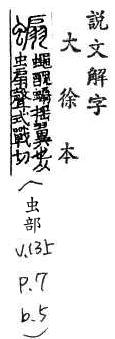 說文解字
大徐本
蠅醜搖翼也从
虫扇聲式戰切
(虫部
v.13上
p.7
b.5)